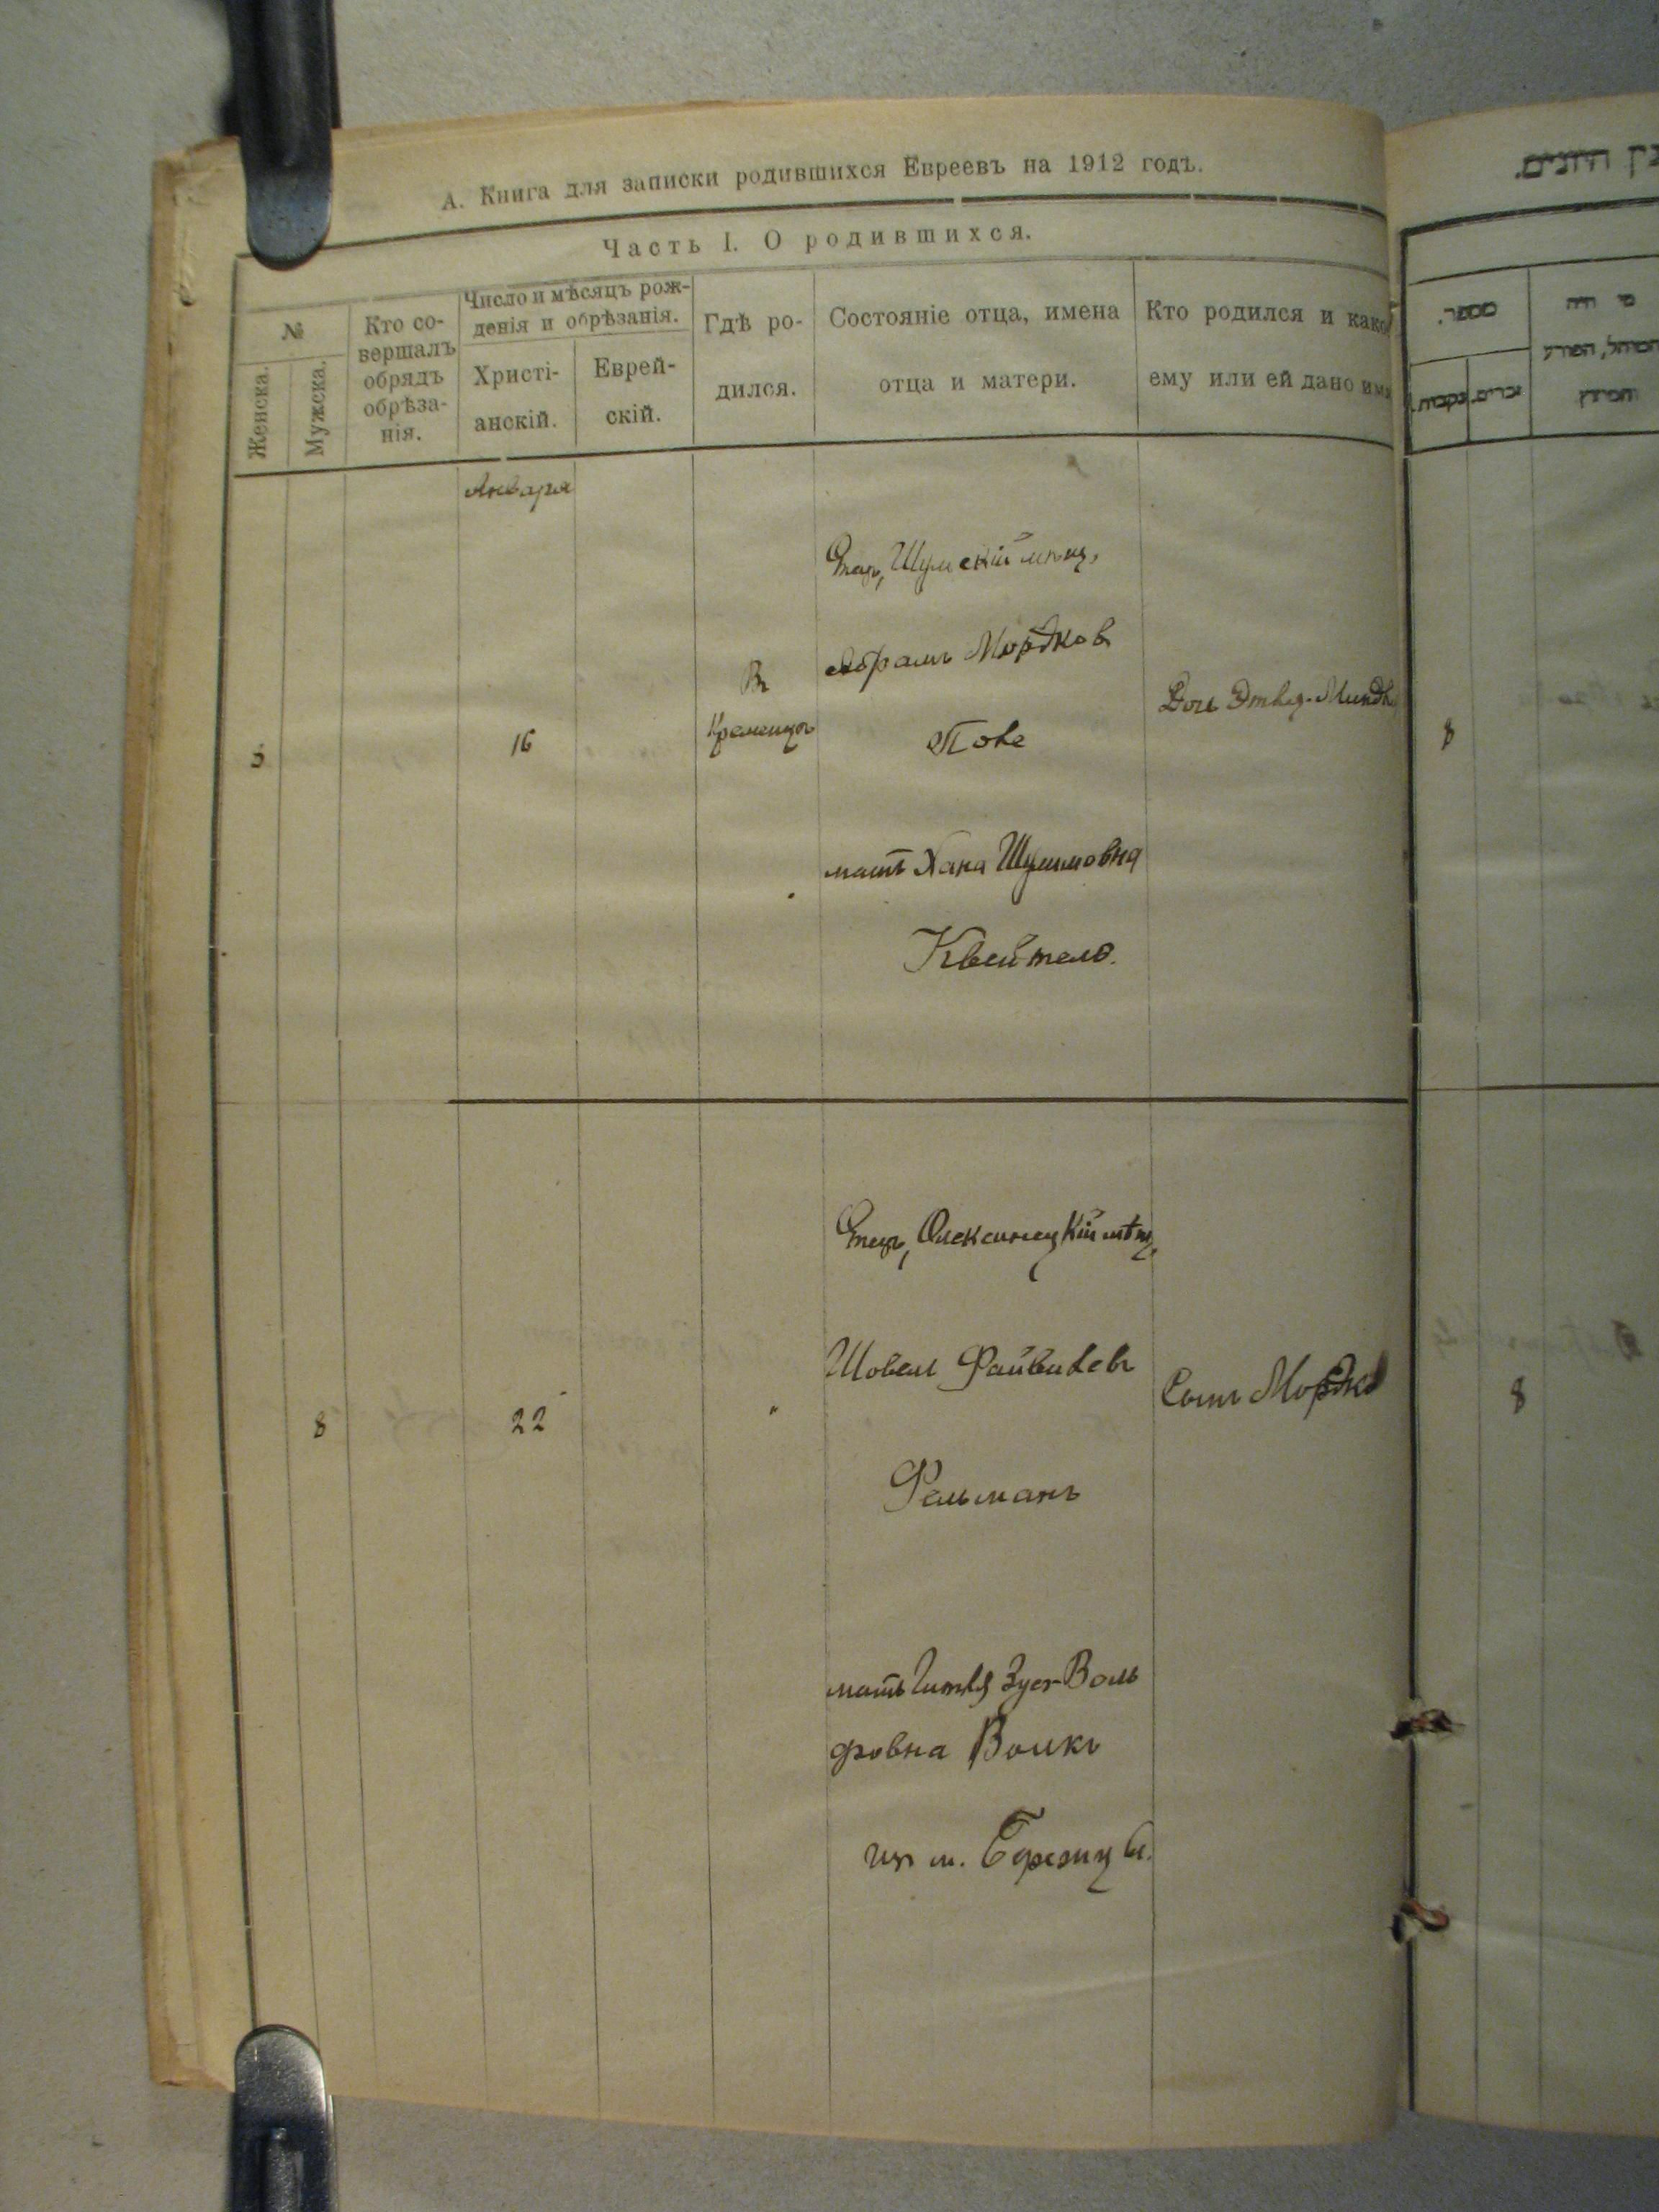 А. Книга для записки родившихся Евреевъ на 1912 годъ.
Часть I. О родившихся.
№
Женска.
Мужска.
Кто со-
вершалъ
обрядъ
обрѣза-
нія.
Число и мѣсяцъ рож-
денія и обрѣзанія.
Христі-
анскій.
Еврей-
скій.
Гдѣ ро-
дился.
Состояніе отца, имена
отца и матери.
Кто родился и како
ему или ей дано имя
Января
3
16
Въ
Кременцѣ
Отецъ, Шумскій мѣщ.
Абрамъ Мордков
мать Хана Шулимовна
Дочь
8
22
"
Отецъ, Олексинецкій мѣщ.
Файвишевъ
Фельманъ
мать Гитля Зусь-Воль
фовна
из м. Бережцы.
Сынъ Мордко
היונים.
מספר.
נקבות.
זכרים.
מי היה
המוהל, הפורע
והמוצץ
8
8